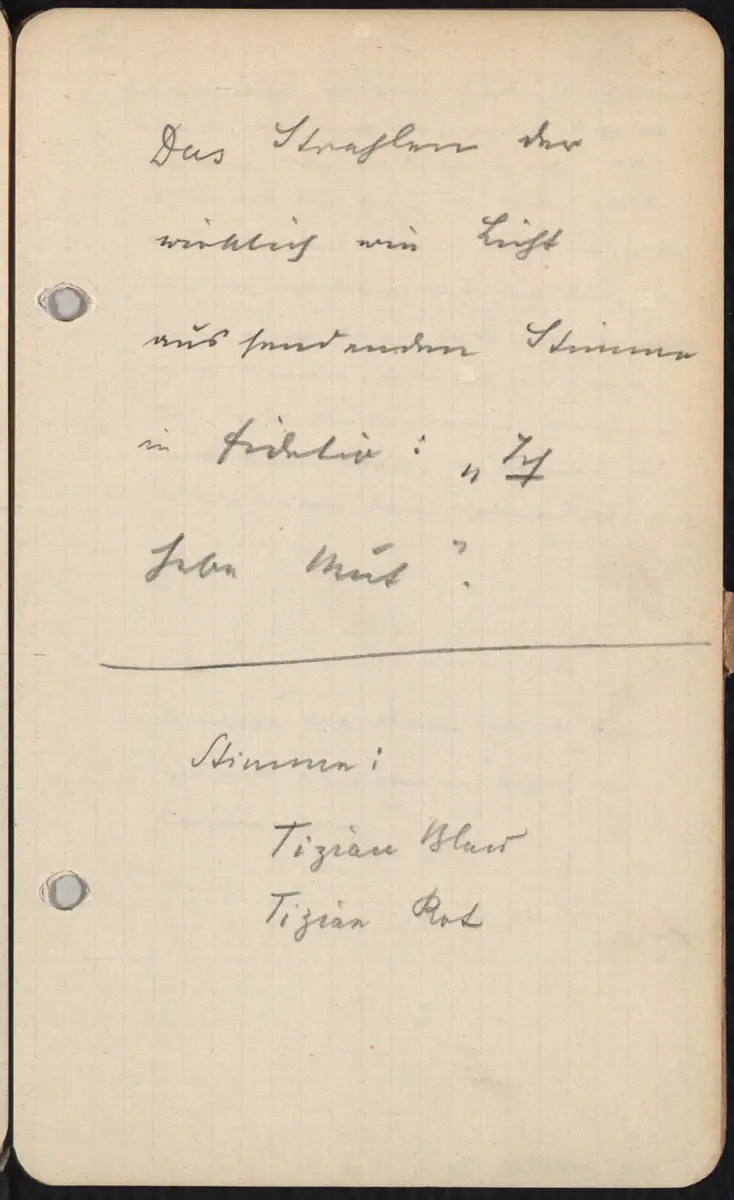 Das Strahlen der
wirklich wie Licht
aussendenden Stimme
in Fidelio: „Ich
habe Mut?
Stimme:
Tizian Blau
Tizian Rot